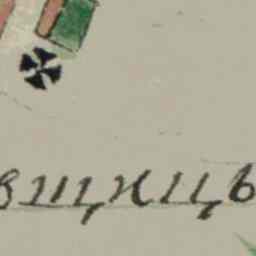 вщиць